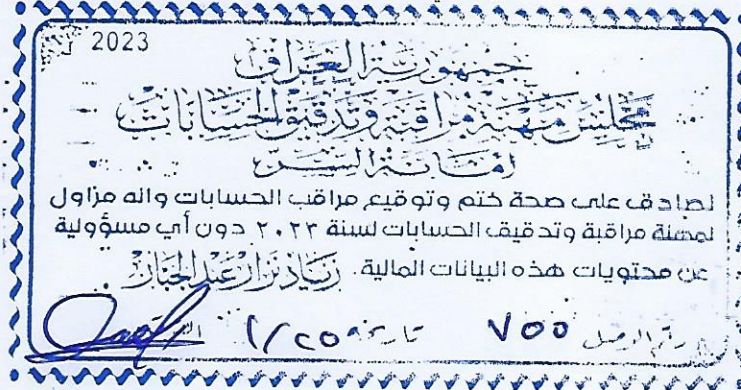 2023
جمهورية العراق
مجلس مهنة مراقبة وتدقيق الحسابات
امانة السر
نصادق على صحة ختم وتوقيع مراقب الحسابات وانه مزاول
لمهنة مراقبة وتدقيق الحسابات لسنة ٢٠٢٣ دون أي مسؤولية
عن محتويات هذه البيانات المالية. زياد نزار عبد الجبار
رقم الوصل ٧٥٥ تاريخه ١/٢٥